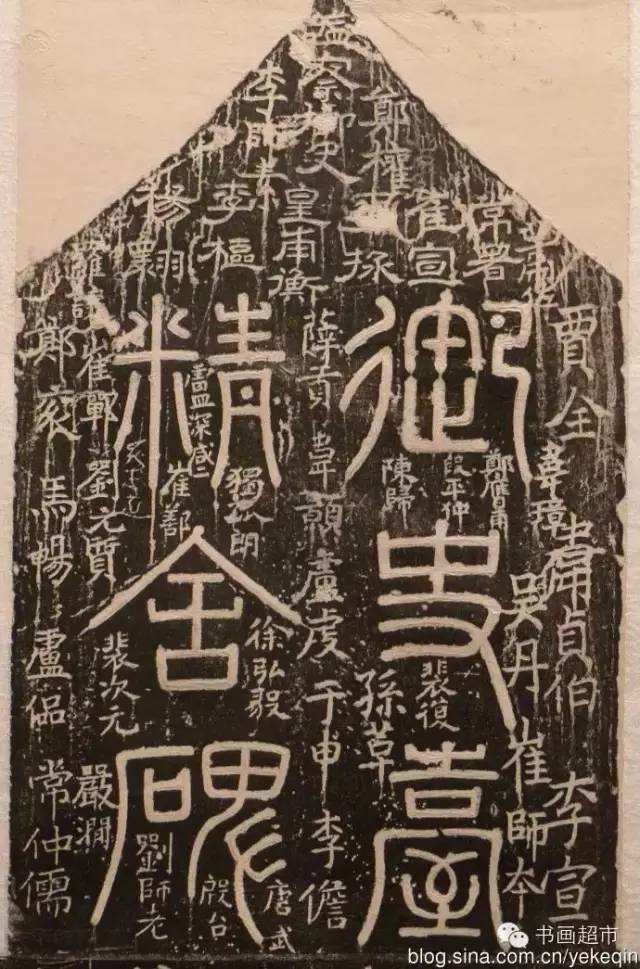 御史臺
精舍碑
監察御史
鄭權
崔宣
常著
王掾
皇甫衡
李師素
李樞
楊翺
賈全
韋璋
韋貞伯
李宣
吳丹
崔師本
鄭雁門
段平仲
陳歸
裴復
孫革
薛貢
韋顗
盧虔
于申
李儋
獨孤朗
盧深
崔鄯
徐弘毅
唐武
殷台
劉師老
崔鄲
劉元質
裴次元
嚴澗
鄭
馬暢
盧侶
常仲儒
书画超市
blog.sina.com.cn/yekeqin